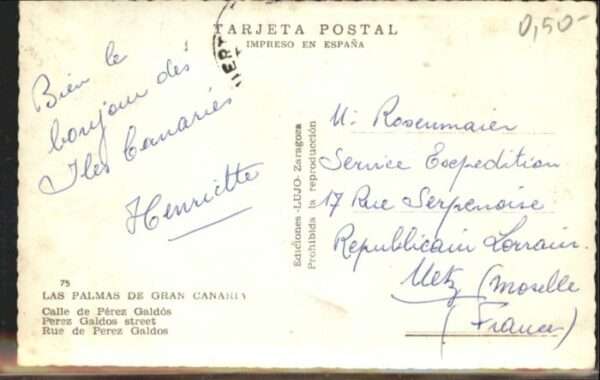 TARJETA POSTAL
IMPRESO EN ESPAÑA
0,50-
Bien le
bonjour des
Iles Canaries
Henriette
75
LAS PALMAS DE GRAN CANARIA
Calle de Pérez Galdós
Perez Galdos street
Rue de Perez Galdos
Ediciones -LUJO- Zaragoza
Prohibida la reproducción
M. Rosenmaier
Service Expedition
17 Rue Serpenoise
Republicain Lorrain.
Metz (Moselle
(France)